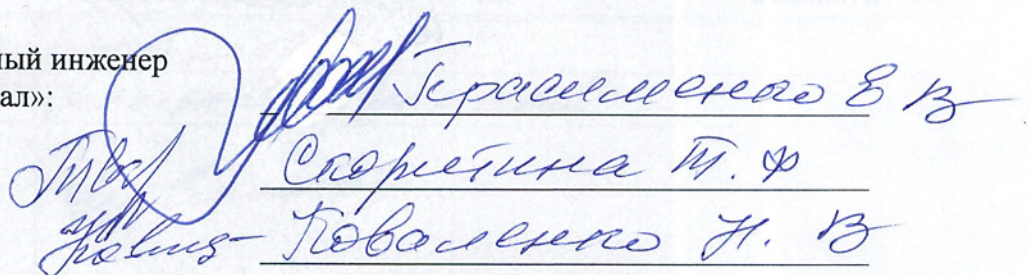 ный инженер
ал»: Герасименко Е В
Скорятина Т. Ф
Коваленко Н. В